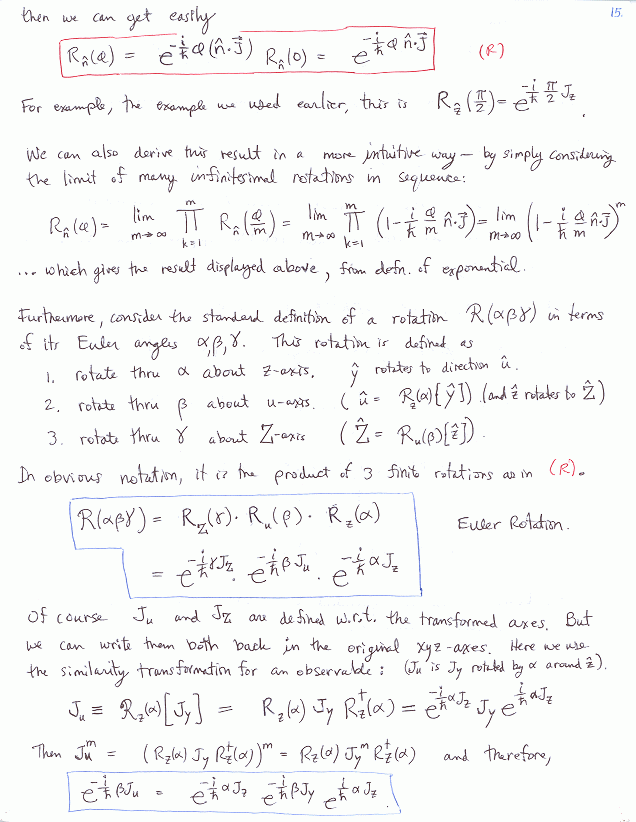 15.
then we can get easily
R_n̂(φ) = e^{-i/ħ φ(n̂·J⃗)} R_n̂(0) = e^{-i/ħ φ n̂·J⃗} (R)
For example, the example we used earlier, this is R_ẑ(π/2) = e^{-i/ħ π/2 J_z}.
We can also derive this result in a more intuitive way — by simply considering
the limit of many infinitesimal rotations in sequence:
R_n̂(φ) = lim_{m→∞} ∏_{k=1}^{m} R_n̂(φ/m) = lim_{m→∞} ∏_{k=1}^{m} (1 - i/ħ φ/m n̂·J⃗) = lim_{m→∞} (1 - i/ħ φ/m n̂·J⃗)^m
... which gives the result displayed above, from defn. of exponential.
Furthermore, consider the standard definition of a rotation R(αβγ) in terms
of its Euler angles α,β,γ. This rotation is defined as
1. rotate thru α about z-axis. ŷ rotates to direction û.
2. rotate thru β about u-axis. (û = R_z(α)[ŷ]) (and ẑ rotates to Ẑ)
3. rotate thru γ about Z-axis (Ẑ = R_u(β)[ẑ]).
In obvious notation, it is the product of 3 finite rotations as in (R).
R(αβγ) = R_Z(γ)· R_u(β)· R_z(α) Euler Rotation.
= e^{-i/ħ γJ_Z}· e^{-i/ħ βJ_u}· e^{-i/ħ αJ_z}
Of course J_u and J_Z are defined w.r.t. the transformed axes. But
we can write them both back in the original xyz-axes. Here we use
the similarity transformation for an observable: (J_u is J_y rotated by α around ẑ).
J_u ≡ R_z(α)[J_y] = R_z(α) J_y R_z†(α) = e^{-i/ħ αJ_z} J_y e^{i/ħ αJ_z}
Then J_u^m = (R_z(α) J_y R_z†(α))^m = R_z(α) J_y^m R_z†(α) and therefore,
e^{-i/ħ βJ_u} = e^{-i/ħ αJ_z} e^{-i/ħ βJ_y} e^{i/ħ αJ_z}.